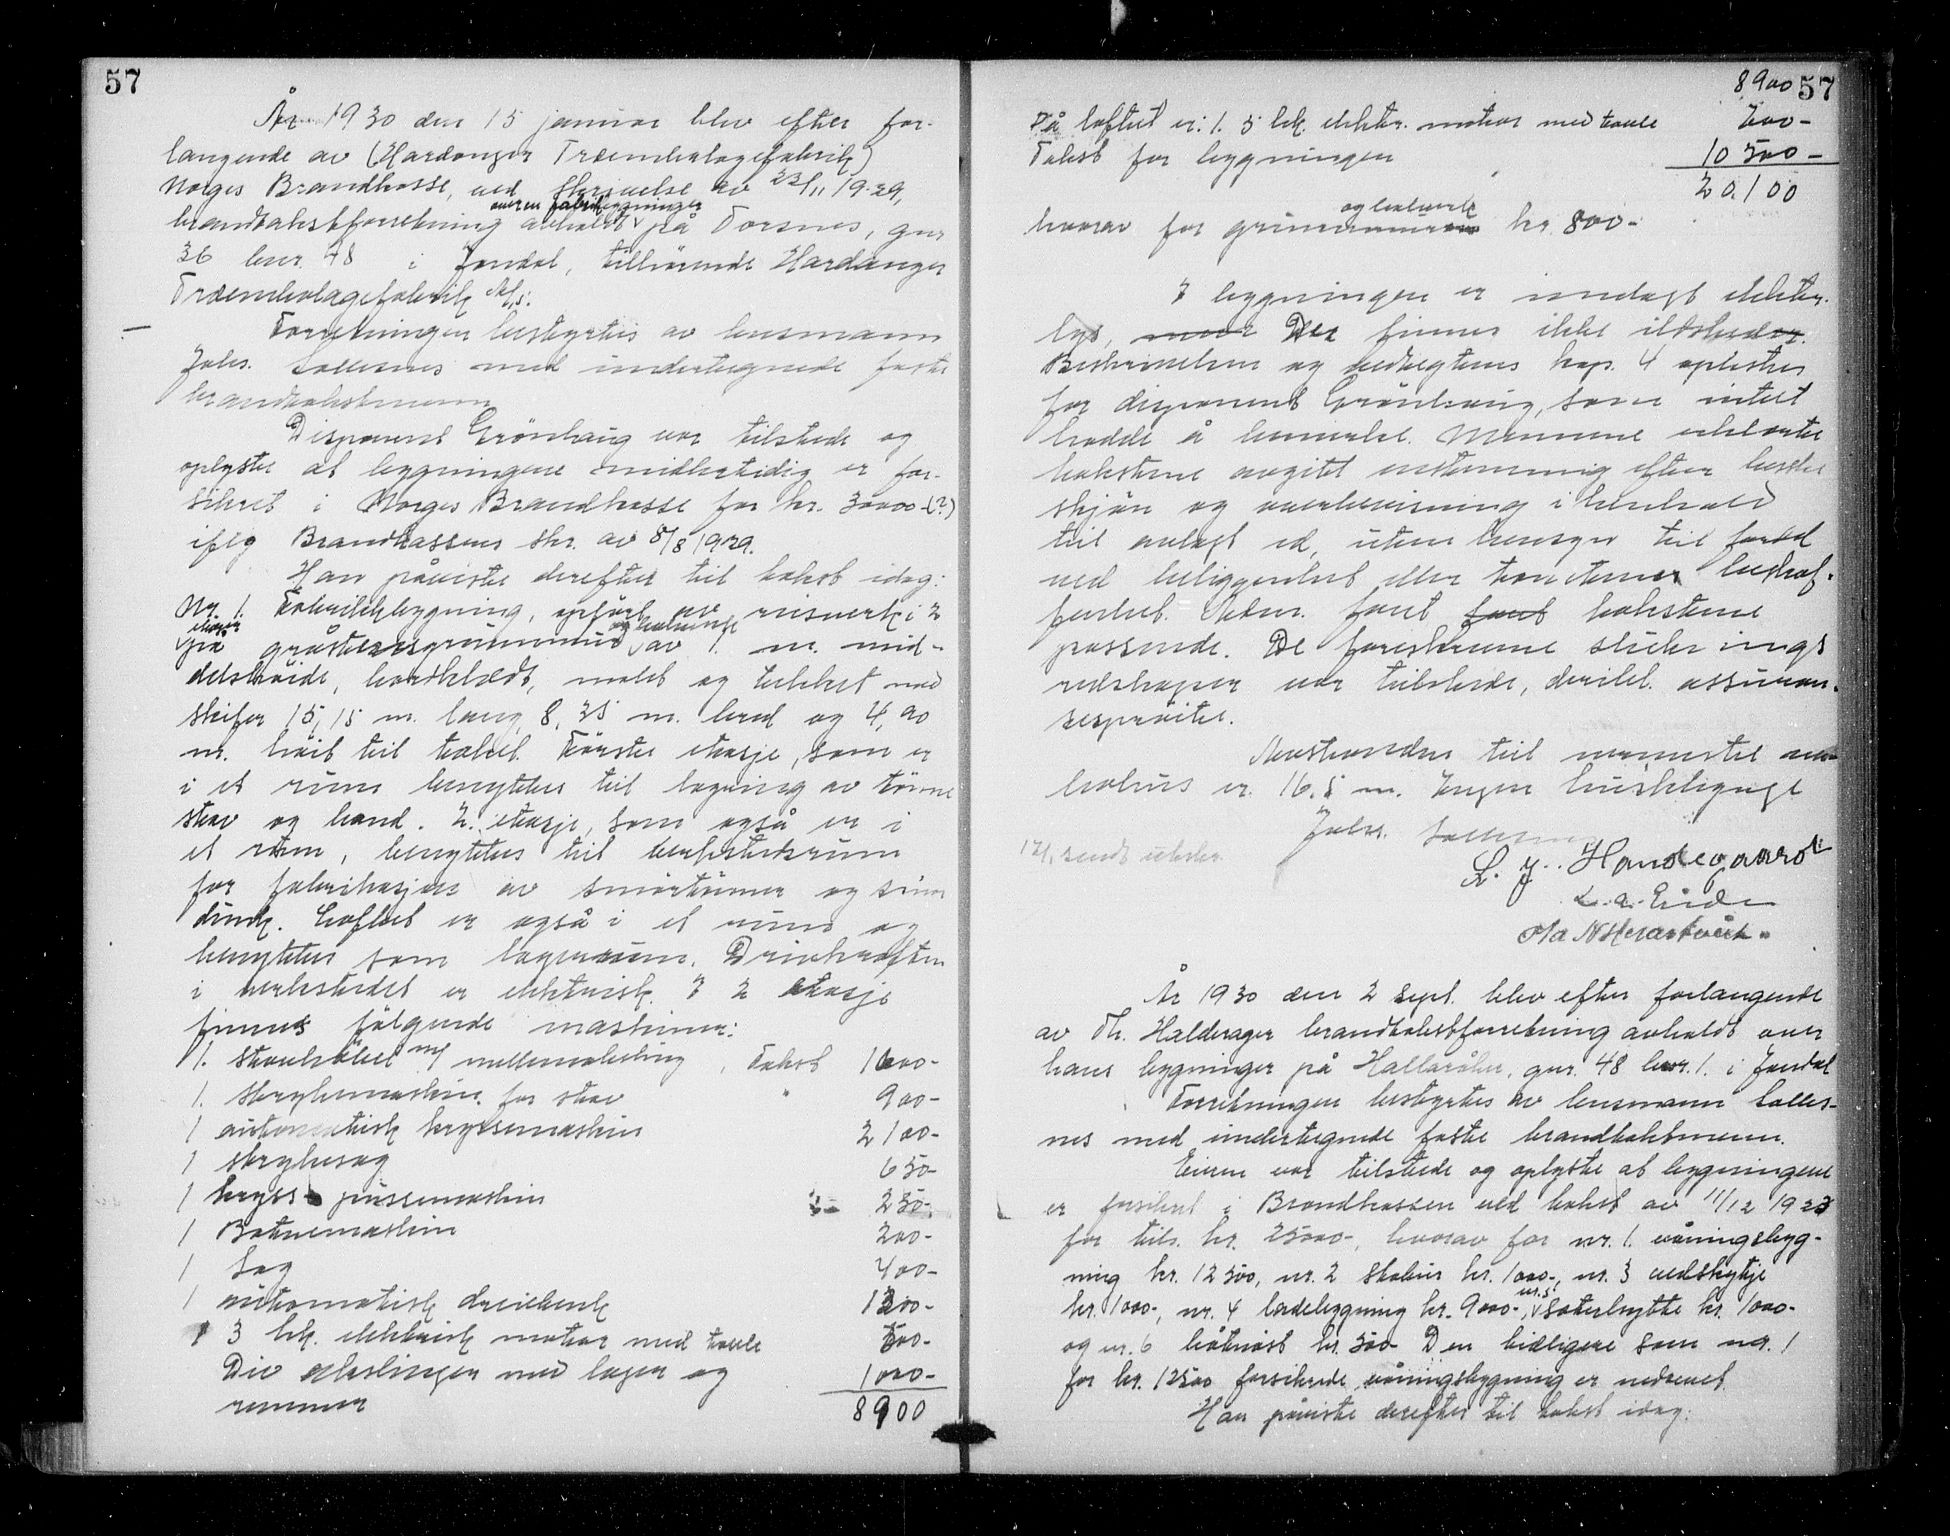 57
År 1930 den 15 januar blev efter for-
langende av (Hardanger Træemballagefabrik)
Norges Brandkasse, ved skrivelse av 23/11 1929,
over en fabrikbygninger
brandtakstforretning avholdt på Torsnes, gnr
36 bnr. 48 i Jondal, tilhørende Hardanger
Træemballagefabrik A/s.
Forretningen bestyrtes av lensmann
Johs. Sollesnes med undertegnede faste
brandtakstmenn
Disponent Grönhaug var tilstede og
oplyste at bygningene midlertidig er for-
sikret i Norges Brandkasse for kr. 30000-(?)
iflg Brandkassens skr. av 8/8 1929.
Han påviste derefter til takst idag:
Nr. 1. Fabrikkbygning, opført av reisverk i 2
etasjer
på gråstensgrunnmur av 1. m. mid-
delshöide, bordklædt, malet og tekket med
skifer 15,15 m. lang, 8,35 m. bred og 4,90
m. höi til taket. Første etasje, som er
i et rum benyttes til lagring av tönne
stav og band. 2. etasje, som også er i
et rum, benyttes til verkstedsrum
for fabrikasjon av smörtönner og
dunk. Loftet er også i et rum og
benyttes som lagerrum. Drivkraften
i verkstedet er elektrisk. I 2 etasje
finnes fölgende maskiner:
1. stavhövel m/ mellemakseling, Takst 1600-
1. strykemaskin for stav " 900-
1 automatisk krysemaskin 2100-
1 strykesag 650-
1 kryss pussemaskin 250-
1 Botnemaskin 200-
1 Sag 400-
1 automatisk dreiebenk 1300-
1 3 hk. elektrisk motor med tavle 500-
Div akslinger med lager og 1000-
remmer 8900
8900 57
På loftet er: 1. 5 hk. elektr. motor med tavle 700-
Takst for bygningen 10500-
20.100
hvorav for grunnmuren kr. 800-
I bygningen er innlagt elektr.
lys, Der finnes ikke ildsteder.
Beskrivelsen og vedtegtens kap. 4 oplestes
for disponent Grönhaug, som intet
hadde å bemerke. Mennene erklærte
takstene avgitt enstemmig efter beste
skjön og overbevisning i henhold
til avlagt ed, uten hensyn til fordel
ved beliggenhet eller tomtens beskaf-
fenhet. Adm. fant takstene
passende. De foreskrevne sluknings
redskaper var tilstede, deribl. assuran-
sespröite.
Avstanden til nærmeste
bolius er 16,5 m. Ingen husklynge
Johs. Sollesnes
17/1 sendt utskr.
L. J. Handegaard
L. A. Eide
Ola N Herastveit
År 1930 den 2 sept. blev efter forlangende
av Th. Halderager brandtakstforretning avholdt over
hans bygninger på Hallaråker, gnr. 48 bnr. 1. i Jondal
Forretningen bestyrtes av lensmann Solles-
nes med undertegnede faste brandtakstmenn.
Eieren var tilstede og oplyste at bygningene
er forsikret i Brandkassen ved takst av 11/12 1923
for tils. kr. 25000-, hvorav for nr. 1. våningsbyg-
ning kr. 12500, nr. 2 stabur kr. 1000-, nr. 3 vedskykje
kr. 1000-, nr. 4 ladebygning kr. 9000-, nr. 5 sæterhytte kr. 1000-
og nr. 6 båtnöst kr. 500- Den tidligere som nr. 1
for kr. 12500 forsikrede våningsbygning er nedrevet.
Han påviste derefter til takst idag: